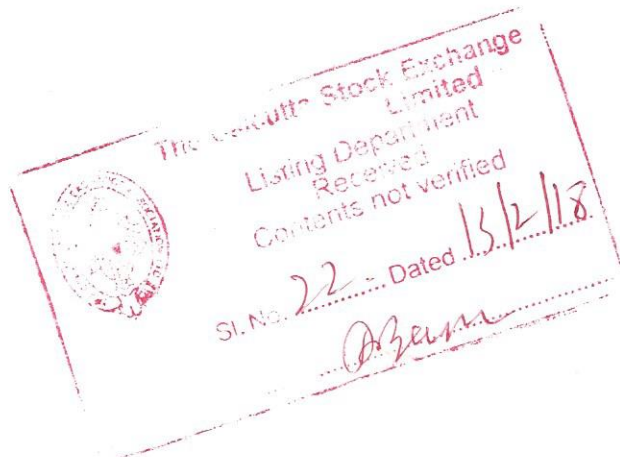 The Calcutta Stock Exchange
Limited
Listing Department
Received
Contents not verified
Sl. No. 22 Dated 15/2/18